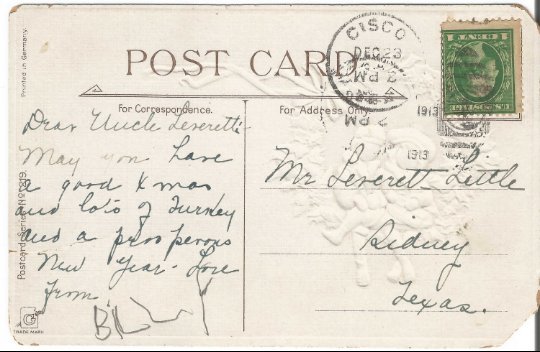 CISCO
DEC 23
PM
1913
POST CARD
Printed in Germany.
For Correspondence.
For Address Only.
2 PM
1913
1913
Dear Uncle Leverett:
May you have
a good Xmas
and lots of Turkey
and a prosperous
New Year - Love
from
Billy
Mr Leverett Little
Sidney
Texas.
TRADE MARK